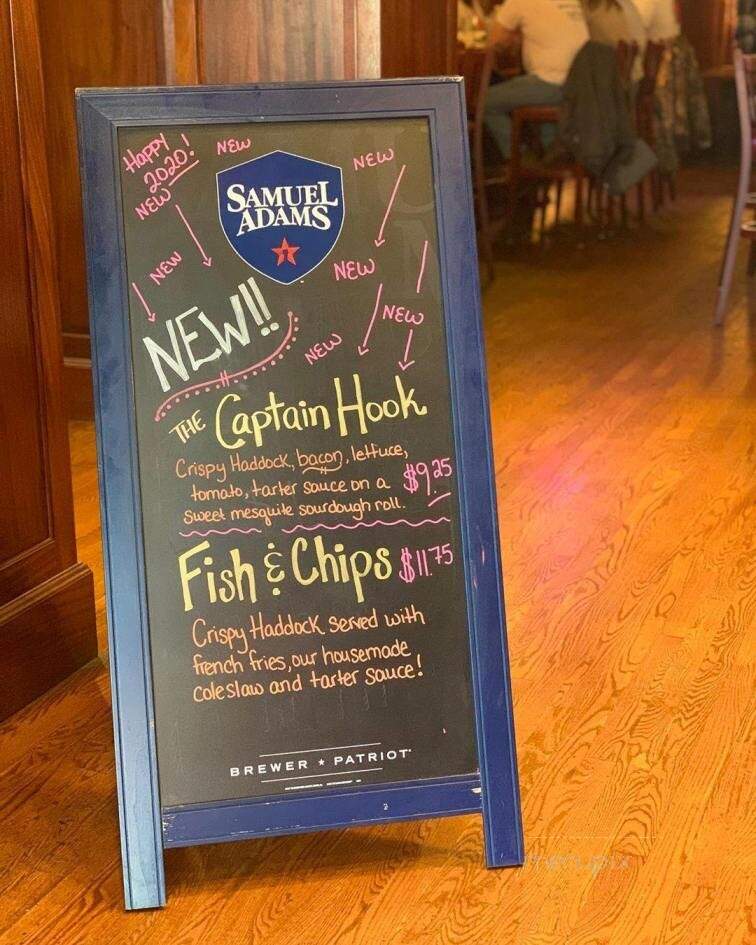 HAPPY
2020!
NEW
NEW
NEW
NEW
NEW
NEW
NEW
SAMUEL
ADAMS
NEW!!
THE Captain Hook
Crispy Haddock, bacon, lettuce,
tomato, tarter sauce on a $9.25
sweet mesquite sourdough roll.
Fish & Chips $11.75
Crispy Haddock served with
french fries, our housemade
coleslaw and tarter sauce!
BREWER ★ PATRIOT
menupix